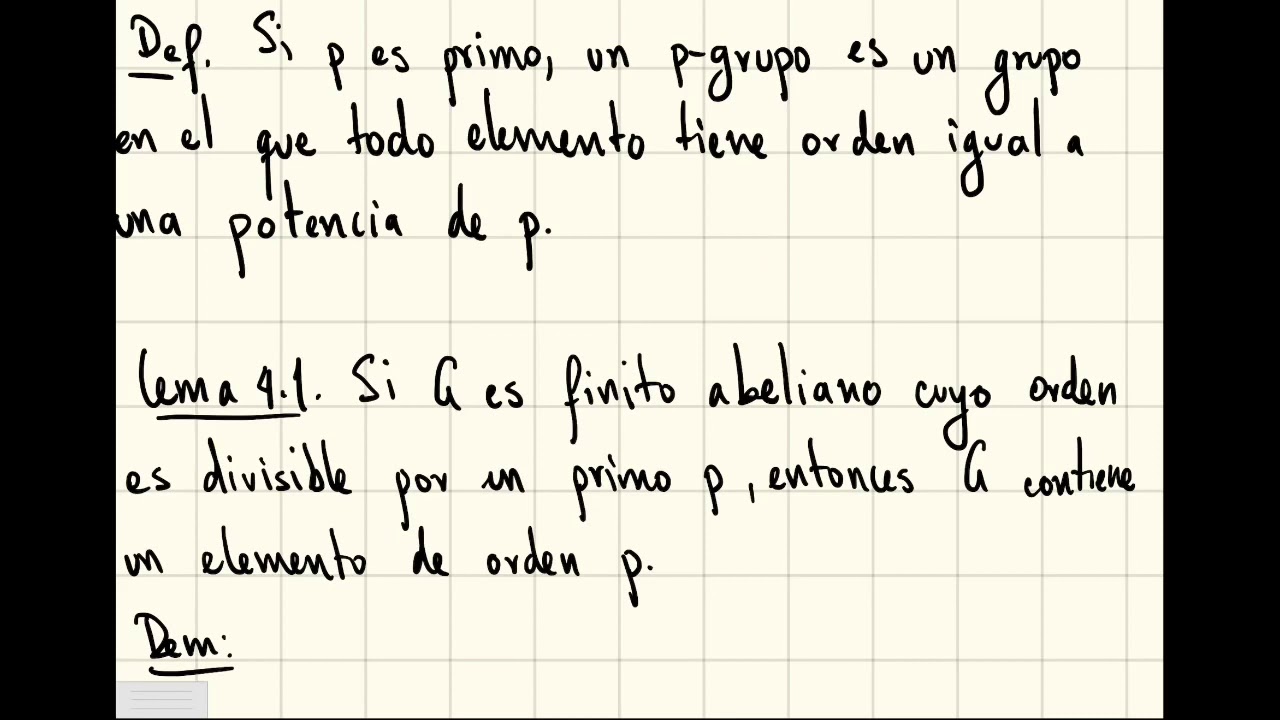 Def. Si p es primo, un p-grupo es un grupo
en el que todo elemento tiene orden igual a
una potencia de p.
Lema 4.1. Si G es finito abeliano cuyo orden
es divisible por un primo p, entonces G contiene
un elemento de orden p.
Dem: